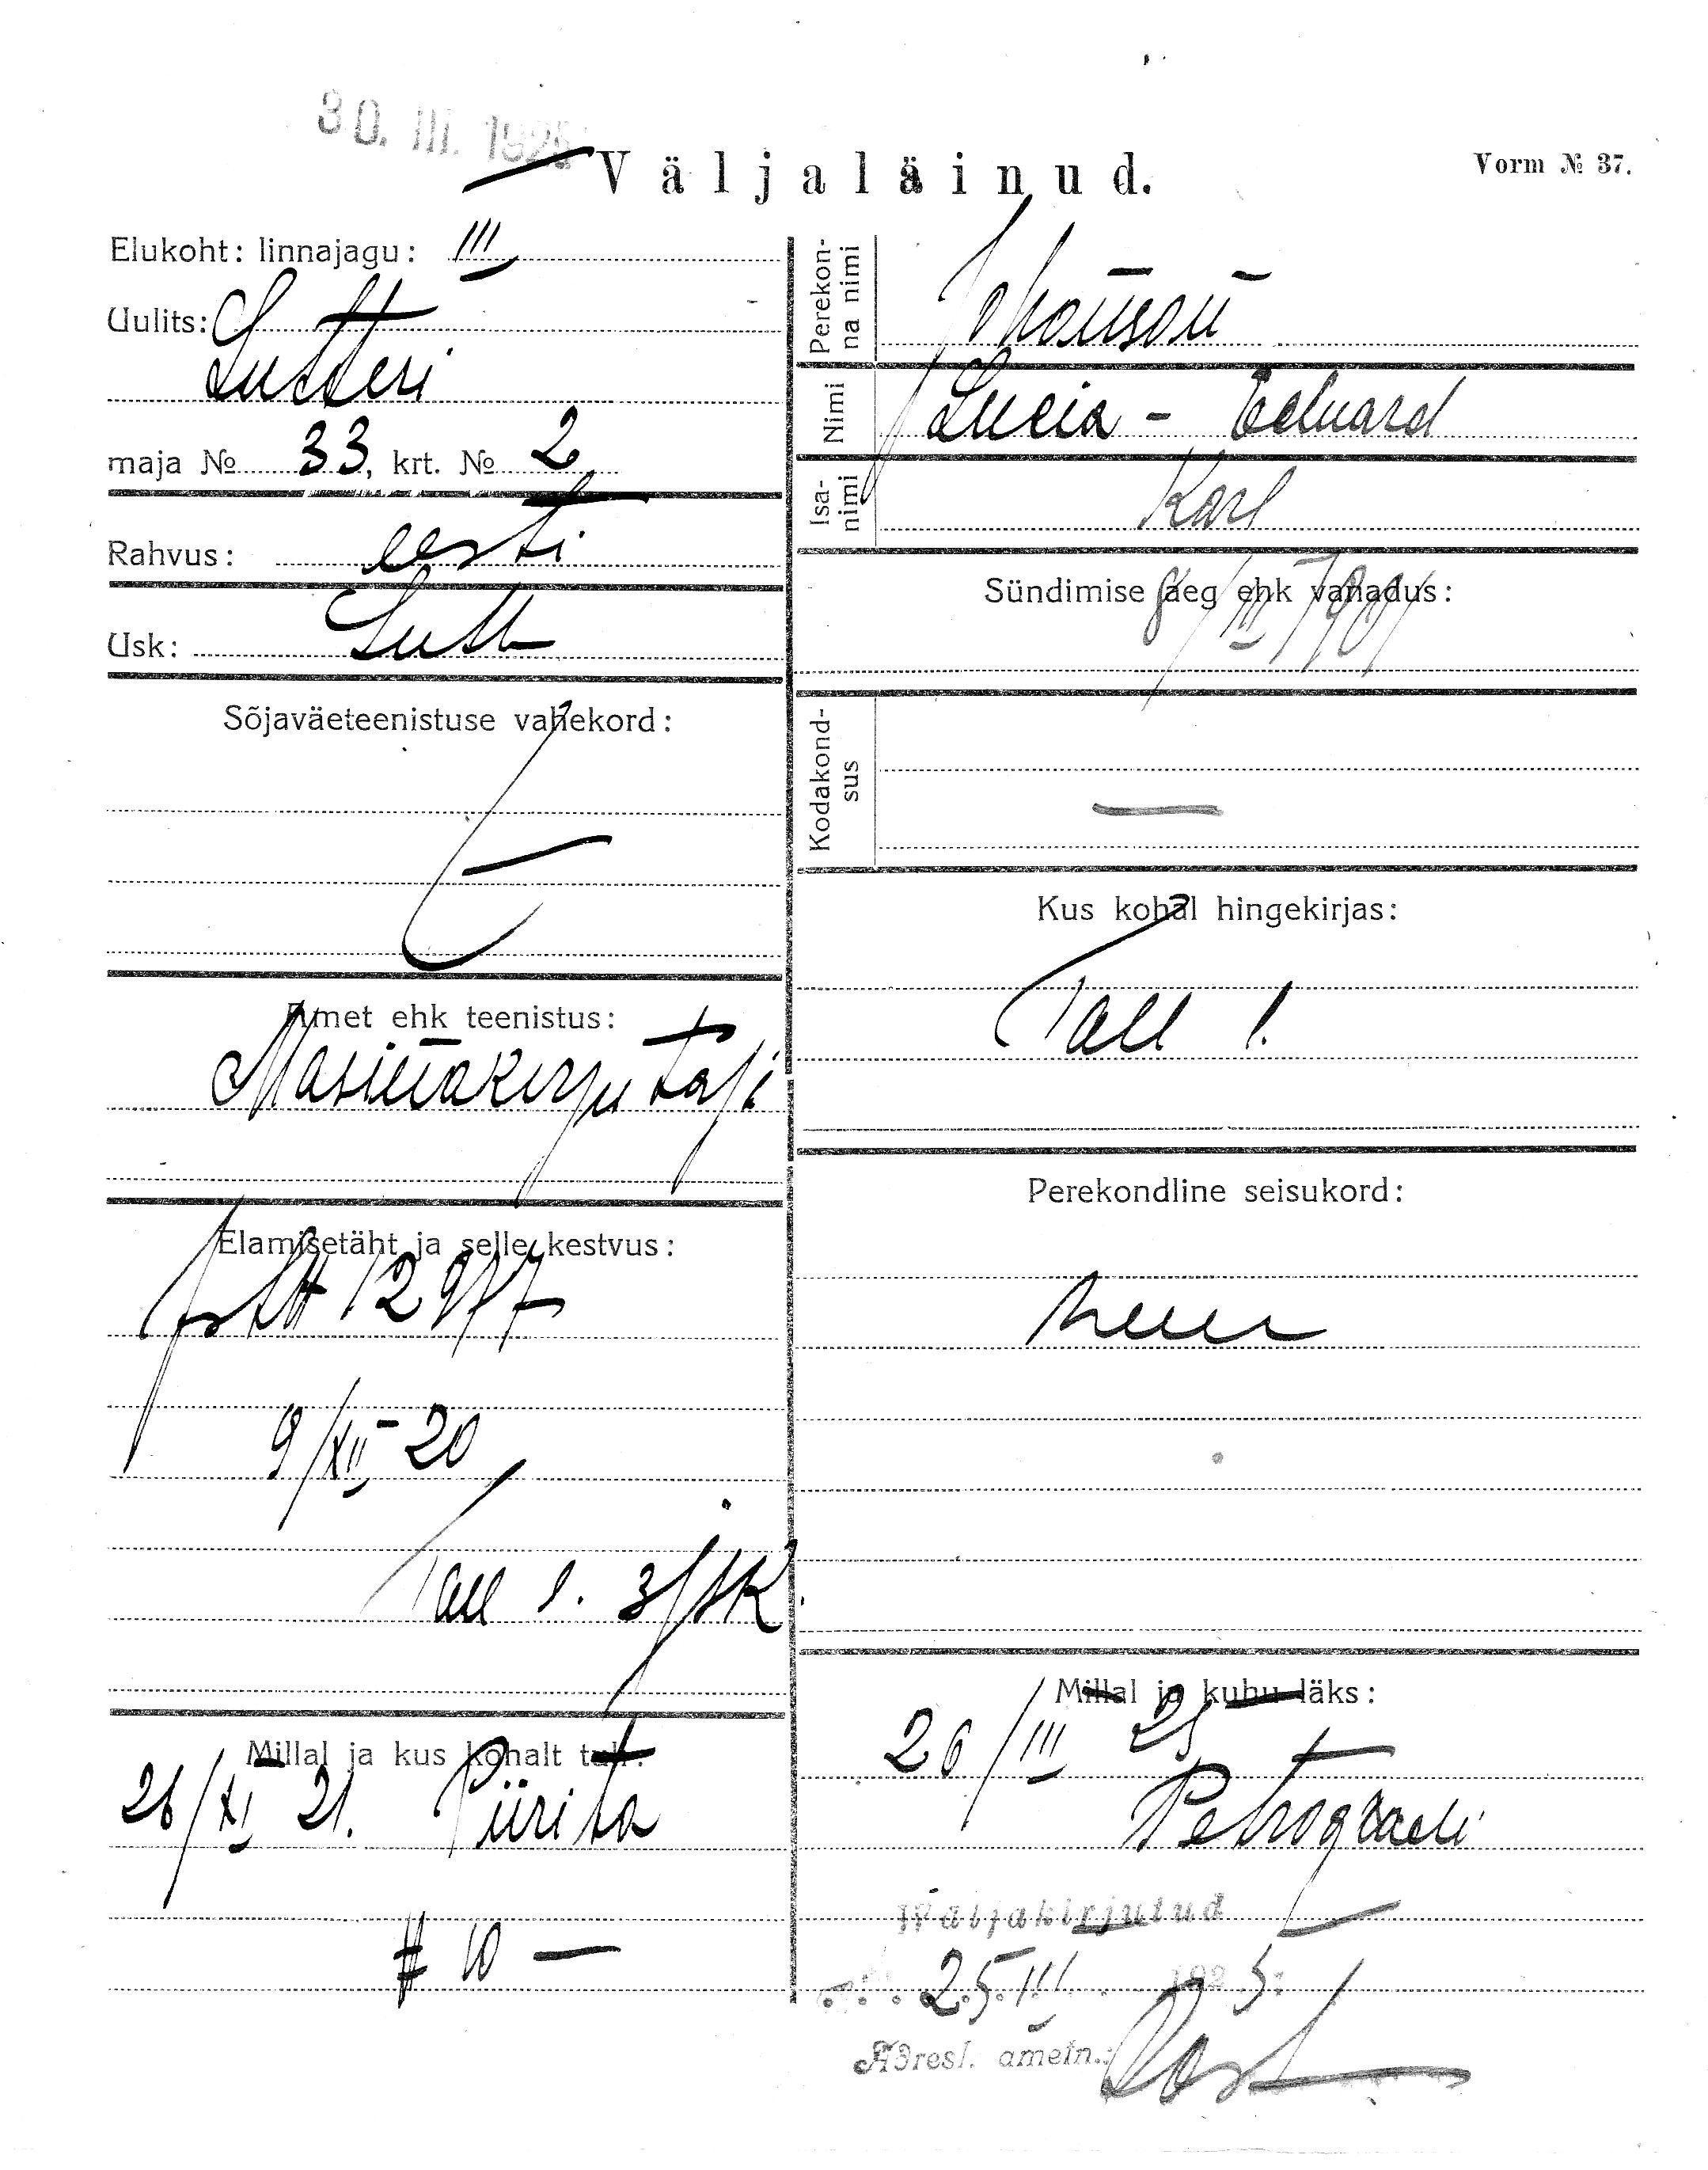 30. III. 1925
Väljaläinud.
Vorm № 37.
Elukoht: linnajagu: III
Uulits:
Lutteri
maja № 33, krt. № 2
Rahvus: eesti
Usk: Luth
Sõjaväeteenistuse vahekord:
—
Amet ehk teenistus:
Masinakirjutaja
Elamisetäht ja selle kestvus:
12977
9/XII 20
Tall l. 3 jsk.
Millal ja kus kohalt tuli:
26/XI 21. Piirita
# 10 —
Perekonna nimi
Johanson
Nimi
Lucia - Eduard
Isanimi
Karl
Sündimise aeg ehk vanadus:
8/III 1901
Kodakondsus
—
Kus kohal hingekirjas:
Tall l.
Perekondline seisukord:
Millal ja kuhu läks:
26/III 25
Petrogradi
Wäljakirjutud
25 III 1925.
Adresl. ametn.: